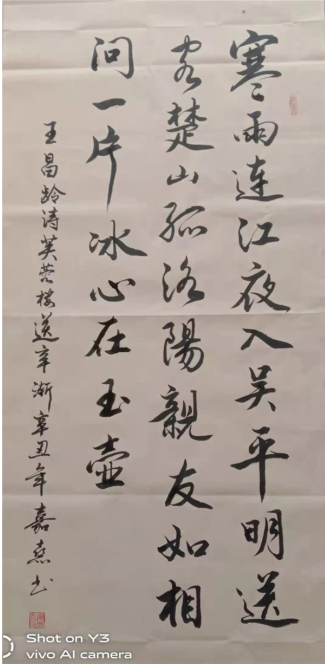 寒雨連江夜入吴平明送
客楚山孤洛陽親友如相
问一片冰心在玉壺
王昌龄诗芙蓉楼送辛渐辛丑年嘉熹书
Shot on Y3
vivo AI camera